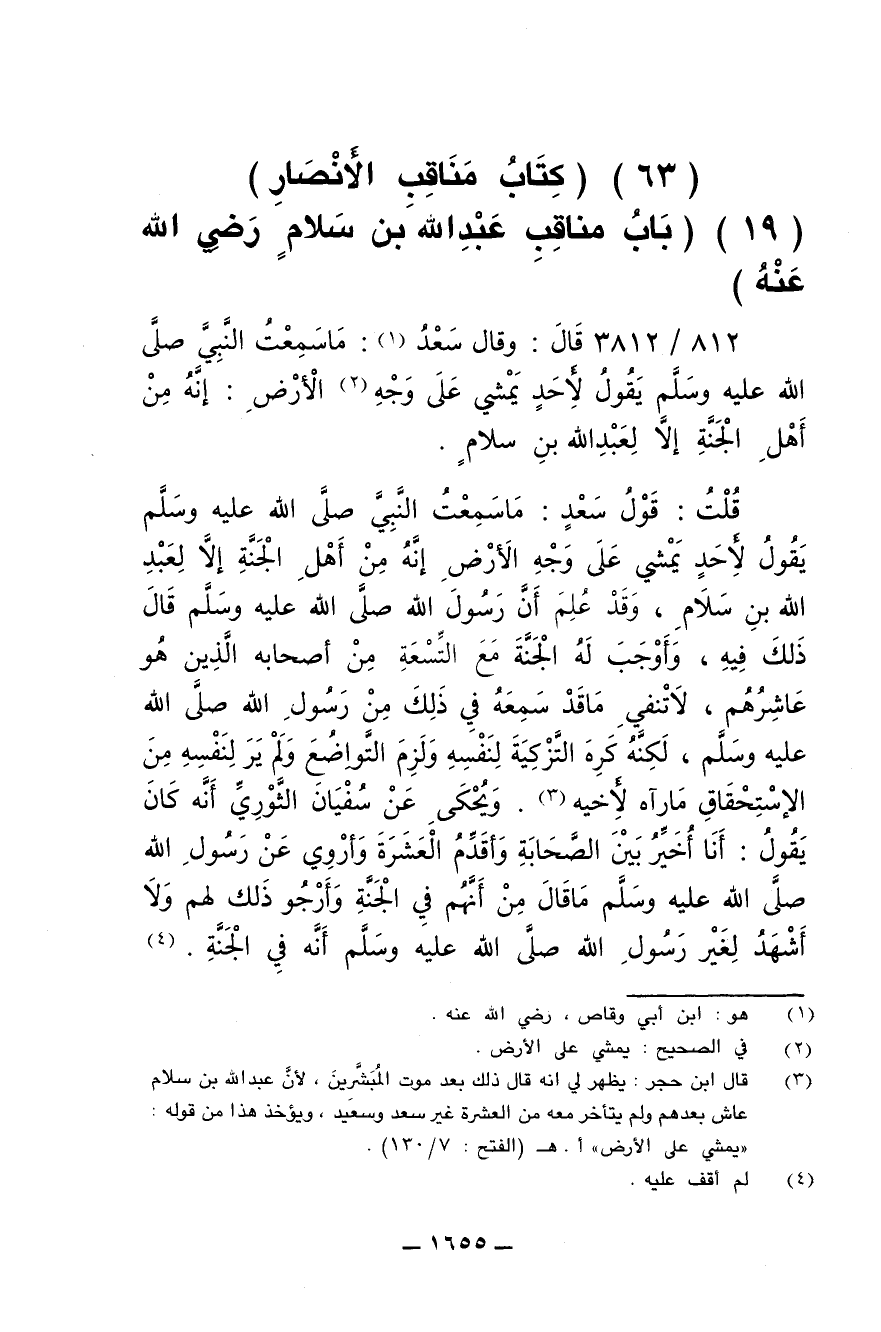 ( ٦٣ ) ( كِتَابُ مَنَاقِبِ الأَنْصَارِ )
( ١٩ ) ( بَابُ مناقِبِ عَبْدِالله بن سَلامٍ رَضِي الله
عَنْهُ )
٨١٢ / ٣٨١٢ قَالَ : وقال سَعْدُ (١) : مَاسَمِعْتُ النَّبِيَّ صلَّى
الله عليه وسَلَّم يَقُولُ لأَحَدٍ يَمْشي عَلَى وَجْهِ (٢) الْأرْضِ : إنَّهُ مِنْ
أَهْلِ الْجَنَّةِ إلَّا لِعَبْدِالله بنِ سلامٍ .
قُلْتُ : قَوْلُ سَعْدٍ : مَاسَمِعْتُ النَّبِيَّ صلَّى الله عليه وسَلَّم
يَقُولُ لأَحَدٍ يَمْشي عَلَى وَجْهِ الَأرْضِ إنَّهُ مِنْ أَهْلِ الْجَنَّةِ إلَّا لِعَبْدِ
الله بنِ سَلَامِ ، وَقَدْ عُلِمَ أنَّ رَسُولَ الله صلَّى الله عليه وسَلَّم قَالَ
ذَلكَ فِيهِ ، وَأَوْجَبَ لَهُ الْجَنَّةَ مَعَ التِّسْعَةِ مِنْ أصحابه الَّذِين هُو
عَاشِرُهُم ، لَاتْنفيِ مَاقَدْ سَمِعَهُ فِي ذَلِكَ مِنْ رَسُولِ الله صلَّى الله
عليه وسَلَّم ، لَكِنَّهُ كَرِهَ التَّزْكِيَةَ لِنَفْسِهِ وَلَزِمَ التَّواضُعَ وَلَمْ يَرَ لِنَفْسِهِ مِنَ
الإسْتِحْقَاقِ مَارآه لأَخيه (٣) . وَيُحْكَى عَنْ سُفْيَانَ الثَّوْرِيِّ أَنَّه كَانَ
يَقُولُ : أَنَا أُخَيِّرُ بَيْنَ الصَّحَابَةِ وَأقَدِّمُ الْعَشَرَةَ وَأَرْوِي عَنْ رَسُولِ الله
صلَّى الله عليه وسَلَّم مَاقَالَ مِنْ أَنَّهُم فِي الْجَنَّةِ وَأَرْجُو ذَلك لهم وَلَا
أَشْهَدُ لِغَيْرِ رَسُولِ الله صلَّى الله عليه وسَلَّم أَنَّه فِي الْجَنَّةِ . (٤)
(١) هو : ابن أبي وقاص ، رضي الله عنه .
(٢) في الصحيح : يمشي على الأرض .
(٣) قال ابن حجر : يظهر لي انه قال ذلك بعد موت المُبَشَّرينَ ، لأنَّ عبدالله بن سلام
عاش بعدهم ولم يتأخر معه من العشرة غير سعد وسعيد ، ويؤخذ هذا من قوله :
«يمشي على الأرض» أ . هـ (الفتح : ١٣٠/٧) .
(٤) لم أقف عليه .
ــ ١٦٥٥ ــ